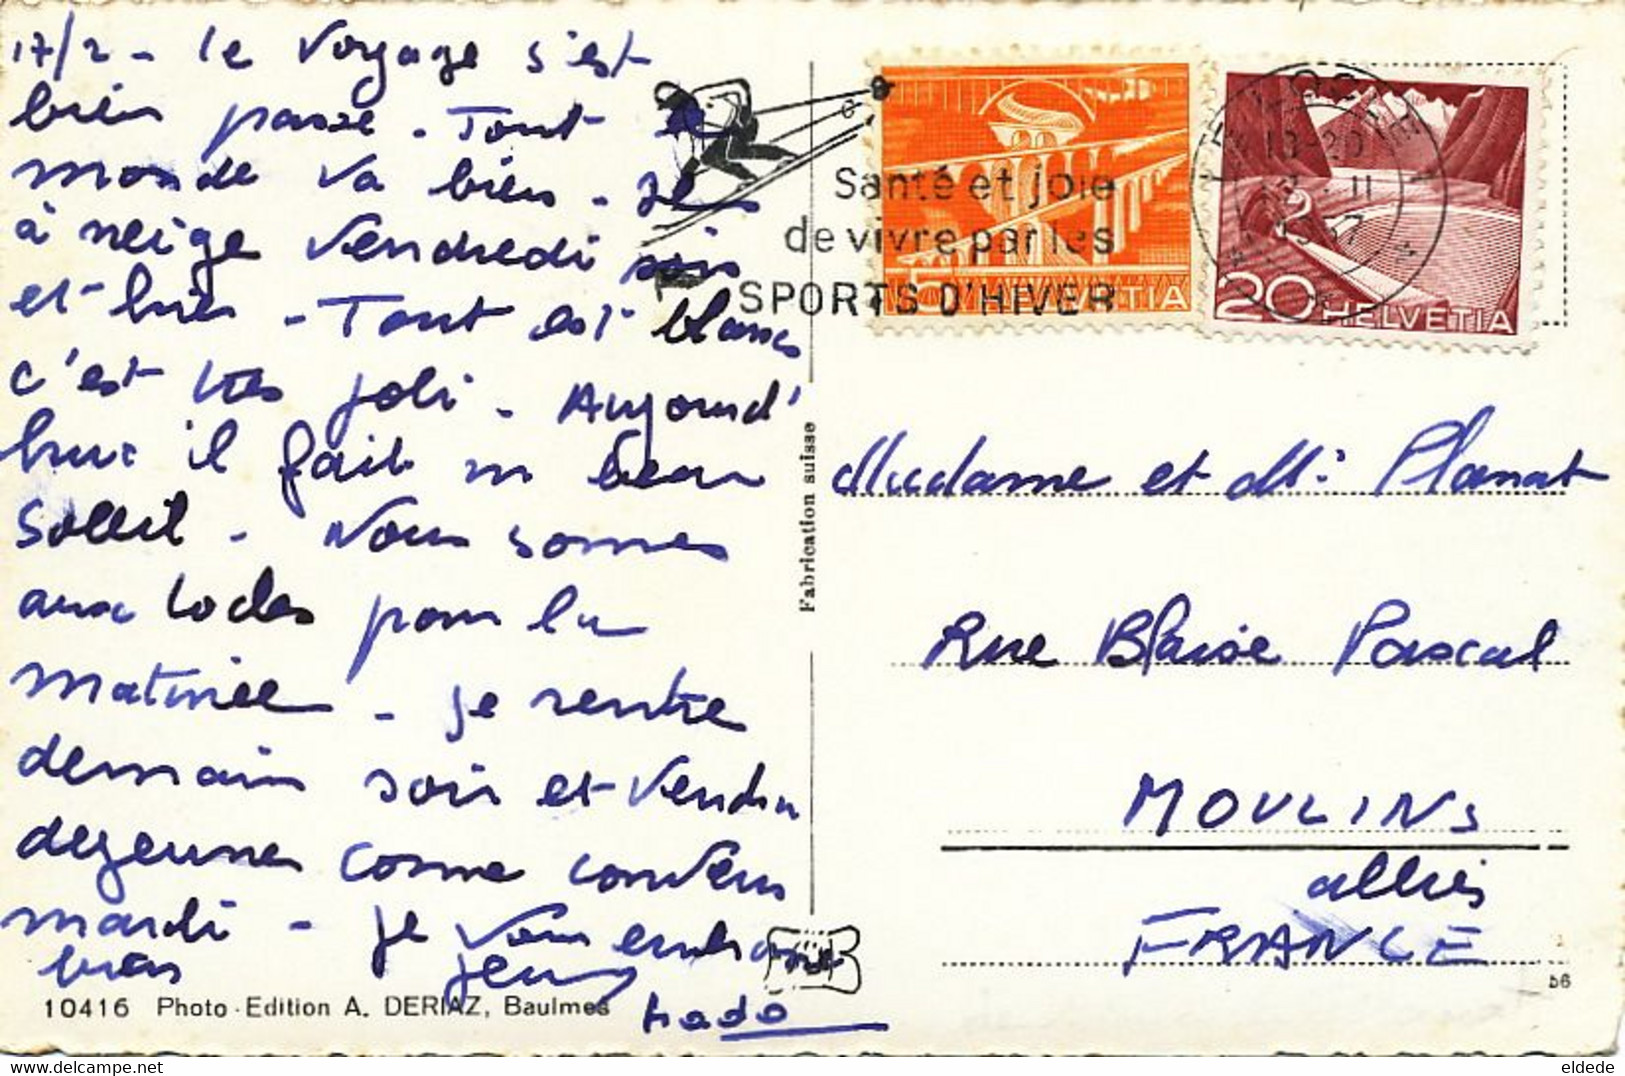 17/2 - le voyage s'est
bien passé - Tout le
monde va bien -
à neigé vendredi soir
et hier - Tout est blanc
c'est très joli - Aujourd'
hui il fait un beau
soleil - Nous sommes
aux pour la
matinée - je rentre
demain soir et viendra
dejeuner comme convenu
mardi - je vous embrasse
bien
10416 Photo-Edition A. DERIAZ, Baulmes
Santé et joie
de vivre par les
SPORTS D'HIVER
5 HELVETIA
20 HELVETIA
Fabrication suisse
Madame et Mr Planat
Rue Blaise Pascal
MOULINS
allier
FRANCE
56
eldede